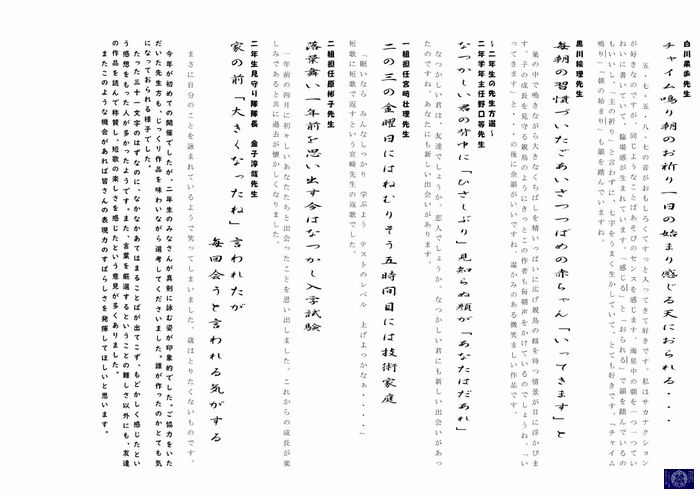 白川泉歩先生
チャイム鳴り朝のお祈り一日の始まり感じる天におられる・・・
五・七・五・八・七の音がおもしろくてすっと入ってきて好きです。私はサカナクション
が好きなのですが、同じようなことばあそびのセンスを感じます。海星中の朝を一つ一つてい
ねいに書いていて、臨場感が生まれています。「感じる」と「おられる」で韻を踏んでいるの
もいいし、「主の祈り」と言わずに、七字をうまく生かしていて、とても好きです。「チャイム
鳴り」「朝の始まり」も韻を踏んでいますね。
黒川絵理先生
毎朝の習慣づいたごあいさつつばめの赤ちゃん「いってきます」と
巣の中で鳴きながら大きなくちばしを精いっぱいに広げ親鳥の餌を待つ情景が目に浮かびま
す。子の成長を見守る親鳥のようにきっとこの作者も毎朝声をかけているのでしょうね。「い
ってきます」と・・・の後に余韻がいいですね。温かみのある微笑ましい作品です。
～二年生の先生方選～
二年学主任野口等先生
なつかしい君の背中に「ひさしぶり」見知らぬ顔が「あなたはだあれ」
なつかしい君は、友達でしょうか。恋人でしょうか。なつかしい君にも新しい出会いがあっ
たのですね。あなたにも新しい出会いがあります。
一組担任宮崎壮理先生
二の三の金曜日にはねむりそう五時間目には技術家庭
「眠いなら みんなしっかり 学ぶよう テストのレベル 上げよっかなぁ・・・・」
短歌に短歌で返すという宮崎先生の返歌でした。
二組担任原彬子先生
落葉舞い一年前を思い出す今はなつかし入学試験
一年前の四月に初々しいあなたたちと出会ったことを思い出しました。これからの成長が楽
しみであると共に過去が懐かしくなりました。
二年生見守り隊隊長 金子淳哉先生
家の前「大きくなったね」言われたが
毎回会うと言われる気がする
まさに自分のことを詠まれているようで笑ってしまいました。歳はとりたくないものです。
今年が初めての開催でしたが、二年生のみなさんが真剣に詠む姿が印象的でした。ご協力をいた
だいた先生方も、じっくり作品を味わいながら選考してくださいました。誰が作ったのかとても気
になっておられる様子でした。
たった三十一文字のはずなのに、なかなかあてはまることばが出てこず、もどかしく感じたとい
う感想をもった人が多かったようです。また、言葉を厳選するということの難しさ以外にも、友達
の作品を読んで称賛し、短歌の楽しさを感じたという意見が多くありました。
またこのような機会があれば皆さんの表現力のすばらしさを発揮してほしいと思います。